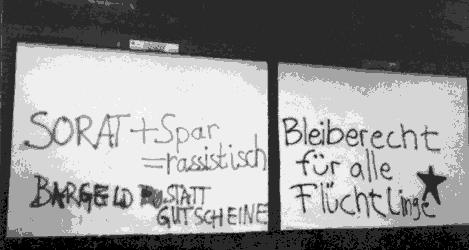 SORAT + Spar
= rassistisch
BARGELD STATT
GUTSCHEINE
Bleiberecht
für alle
Flüchtlinge